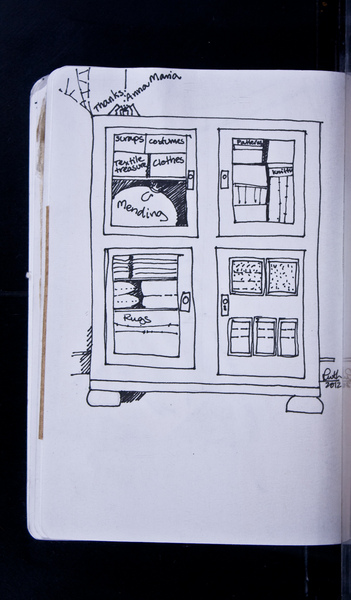 Thanks
Anna Maria
Scraps
costumes
Textile
treasure
Clothes
Mending
Patterns
Rugs
Ruth
2012